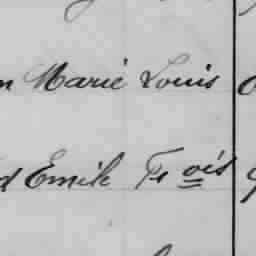 Marie Louis
Emile Frois